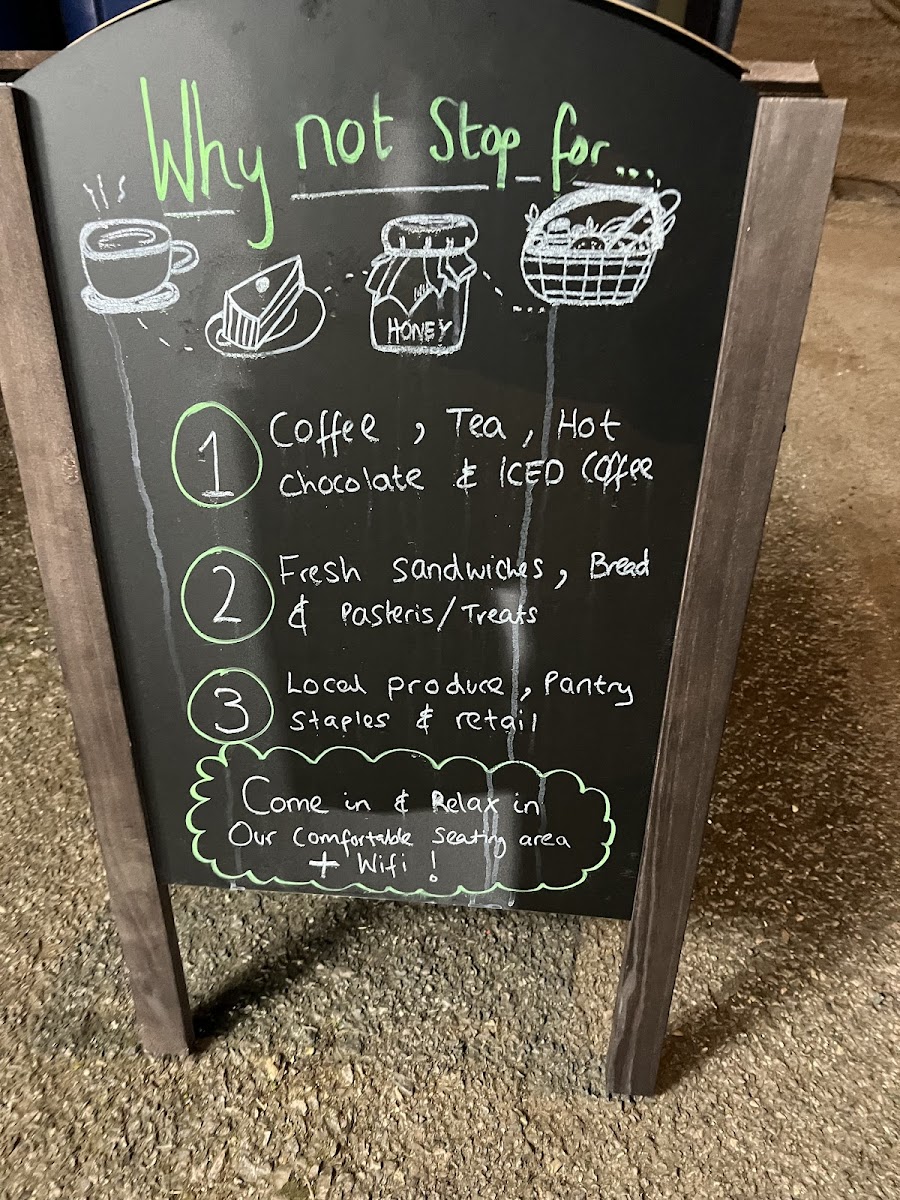 Why not Stop for...
HONEY
1 Coffee, Tea, Hot
chocolate & ICED Coffee
2 Fresh sandwiches, Bread
& Pasteris/Treats
3 Local produce, Pantry
staples & retail
Come in & Relax in
Our Comfortable Seating area
+ Wifi !